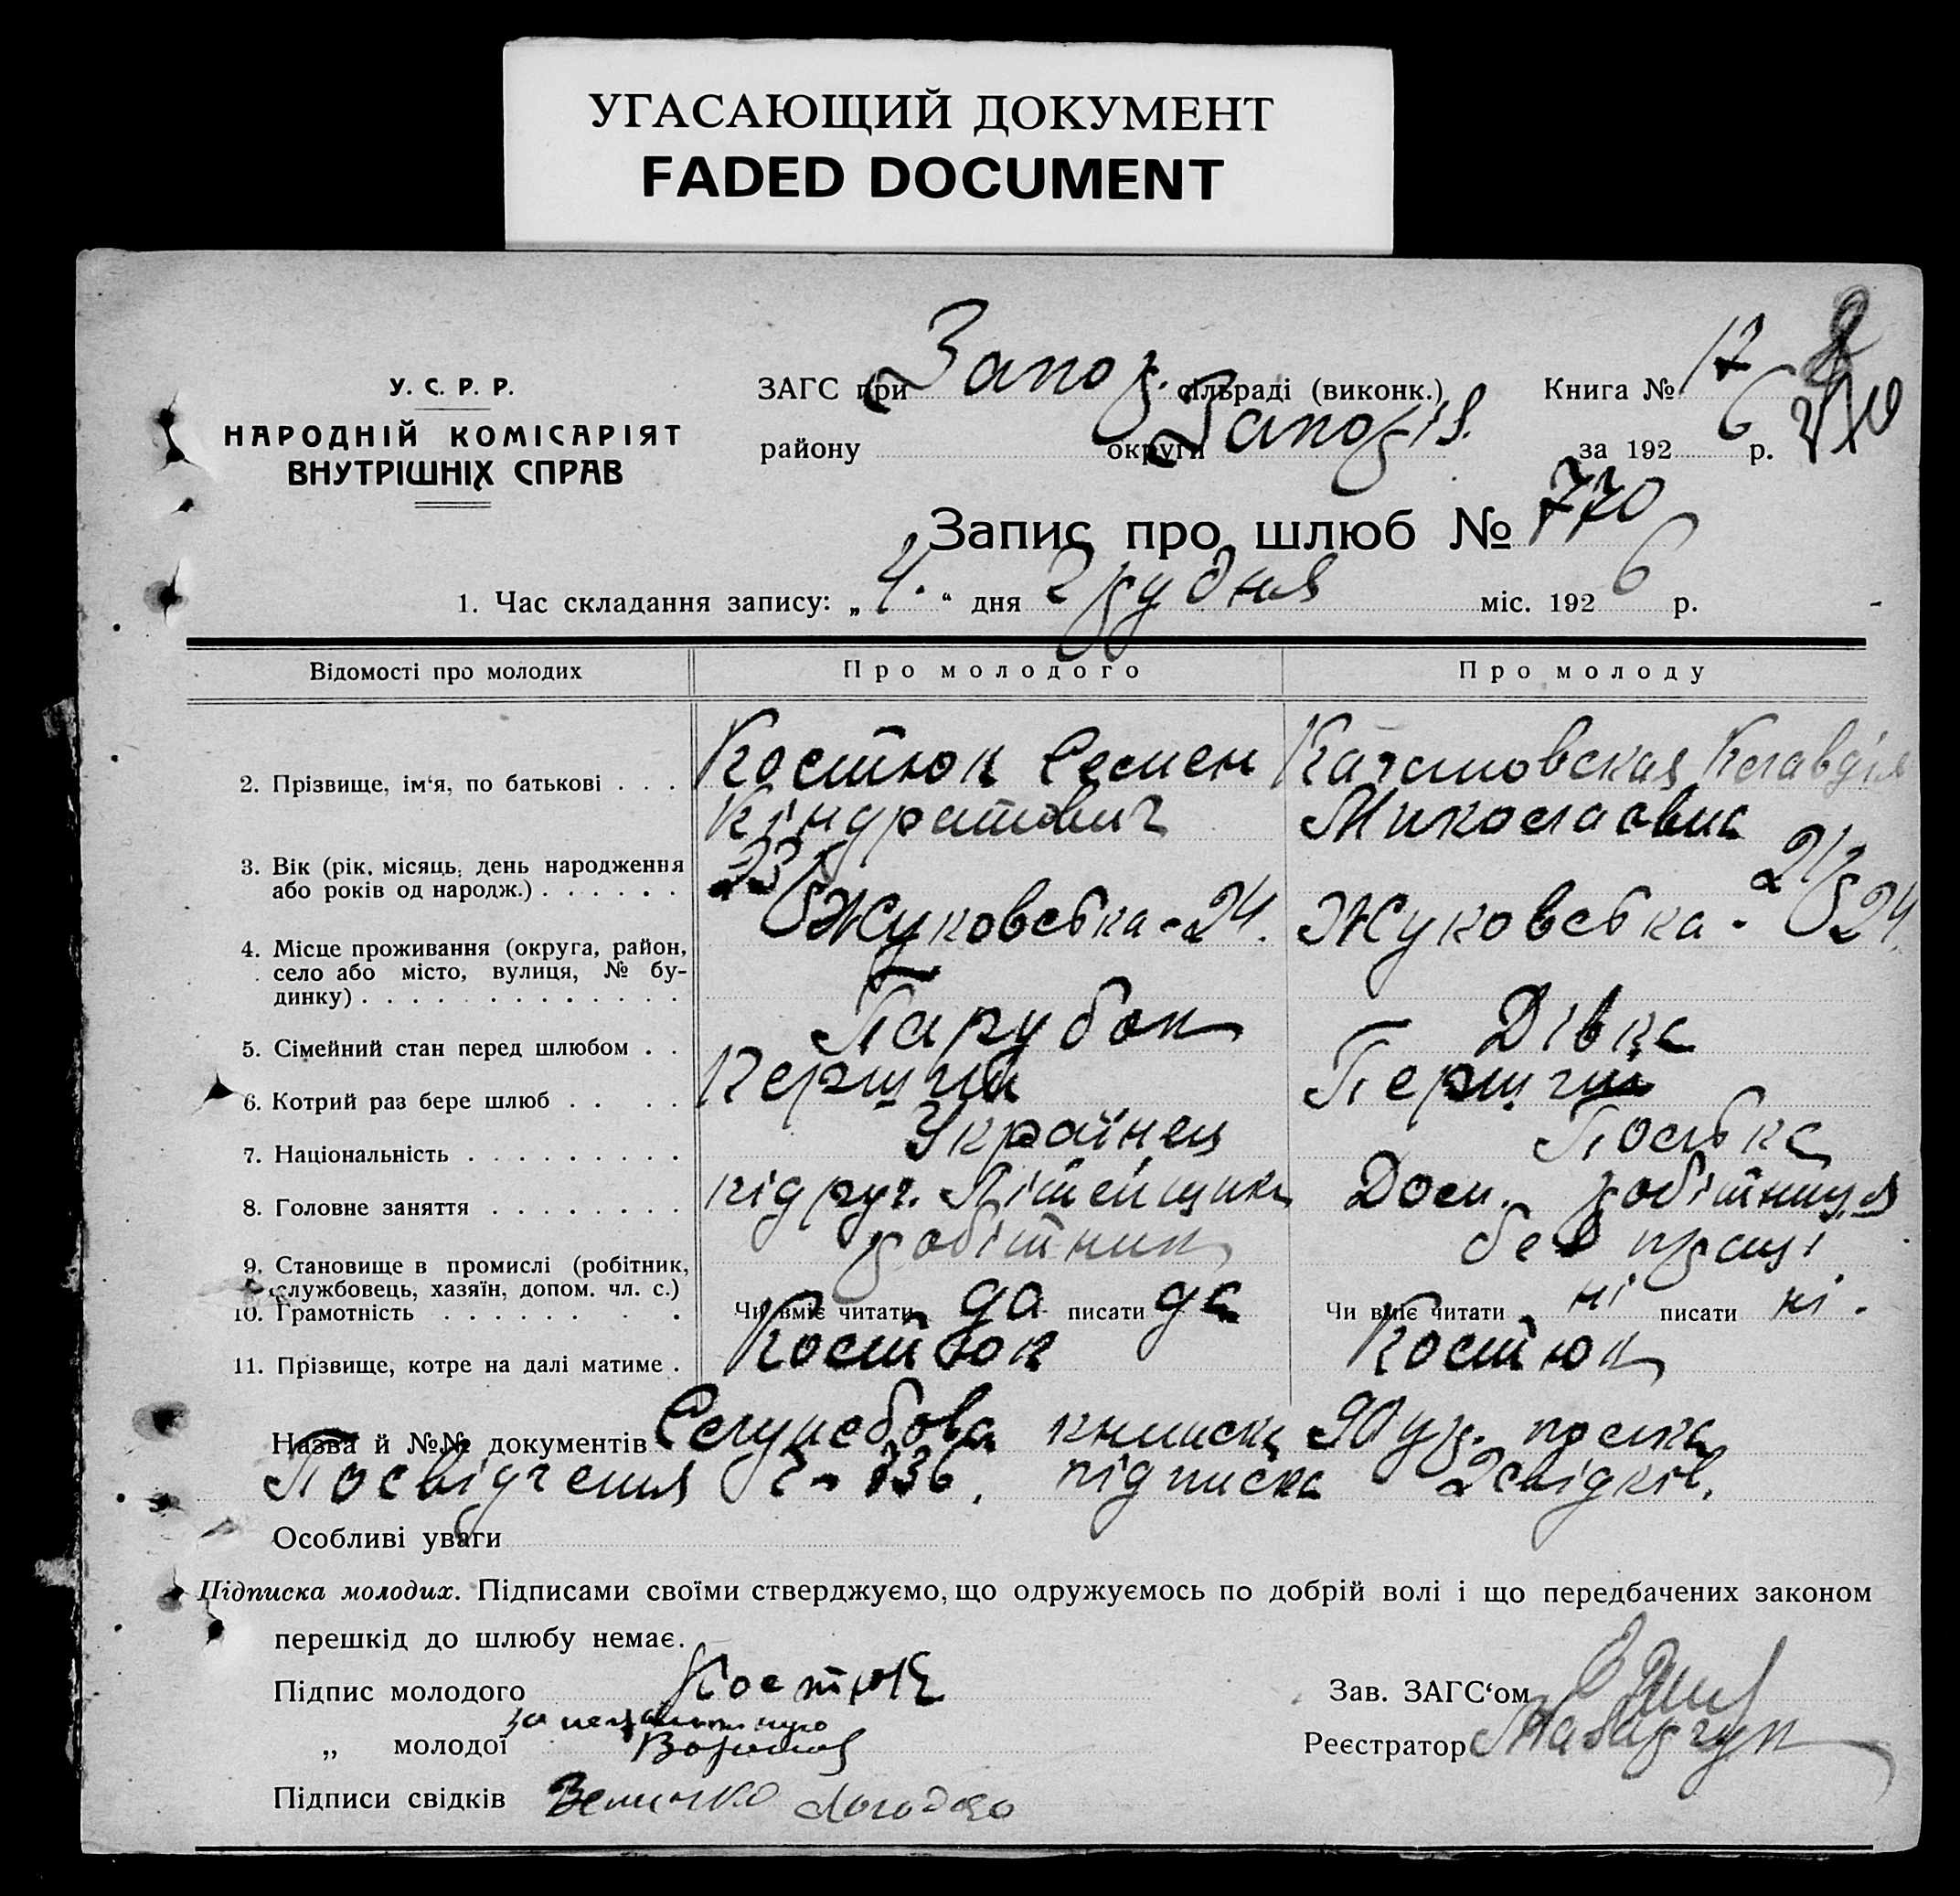 УГАСАЮЩИЙ ДОКУМЕНТ
FADED DOCUMENT
У. С. Р. Р.
НАРОДНІЙ КОМІСАРІЯТ
ВНУТРІШНІХ СПРАВ
ЗАГС при Запоз. сільраді (виконк.) Книга № 17
району округи Запоріз. за 1926 р.
Запис про шлюб № 770
1. Час складання запису: „4.“ дня Грудня міс. 1926 р.
Відомості про молодих Про молодого Про молоду
2. Прізвище, ім‘я, по батькові . . . Костюк Семен Кіндратович Миколаєвна
3. Вік (рік, місяць, день народження або років од народж.) . . . . . . 23 21
4. Місце проживання (округа, район, село або місто, вулиця, № будинку) . . . . . . . . . . . . . Жуковська-24. Жуковська - 24.
5. Сімейний стан перед шлюбом . . Парубок Дівка
6. Котрий раз бере шлюб . . . . Перший Перший
7. Національність . . . . . . . . . Українец Полька
8. Головне заняття . . . . . . . . підруч. Літейщика Дом. робітниця
9. Становище в промислі (робітник, службовець, хазяїн, допом. чл. с.) робітник без праці
10. Грамотність . . . . . . . . Чи вміє читати да писати да Чи вміє читати ні писати ні.
11. Прізвище, котре на далі матиме . Костюк Костюк
Назва й №№ документів книжка
Посвідчення 736, підписка 2 свідків.
Особливі уваги
Підписка молодих. Підписами своїми стверджуємо, що одружуємось по добрій волі і що передбачених законом
перешкід до шлюбу немає.
Підпис молодого Костюк Зав. ЗАГС‘ом
за неграмотную
„ молодої Реєстратор
Підписи свідків Величко